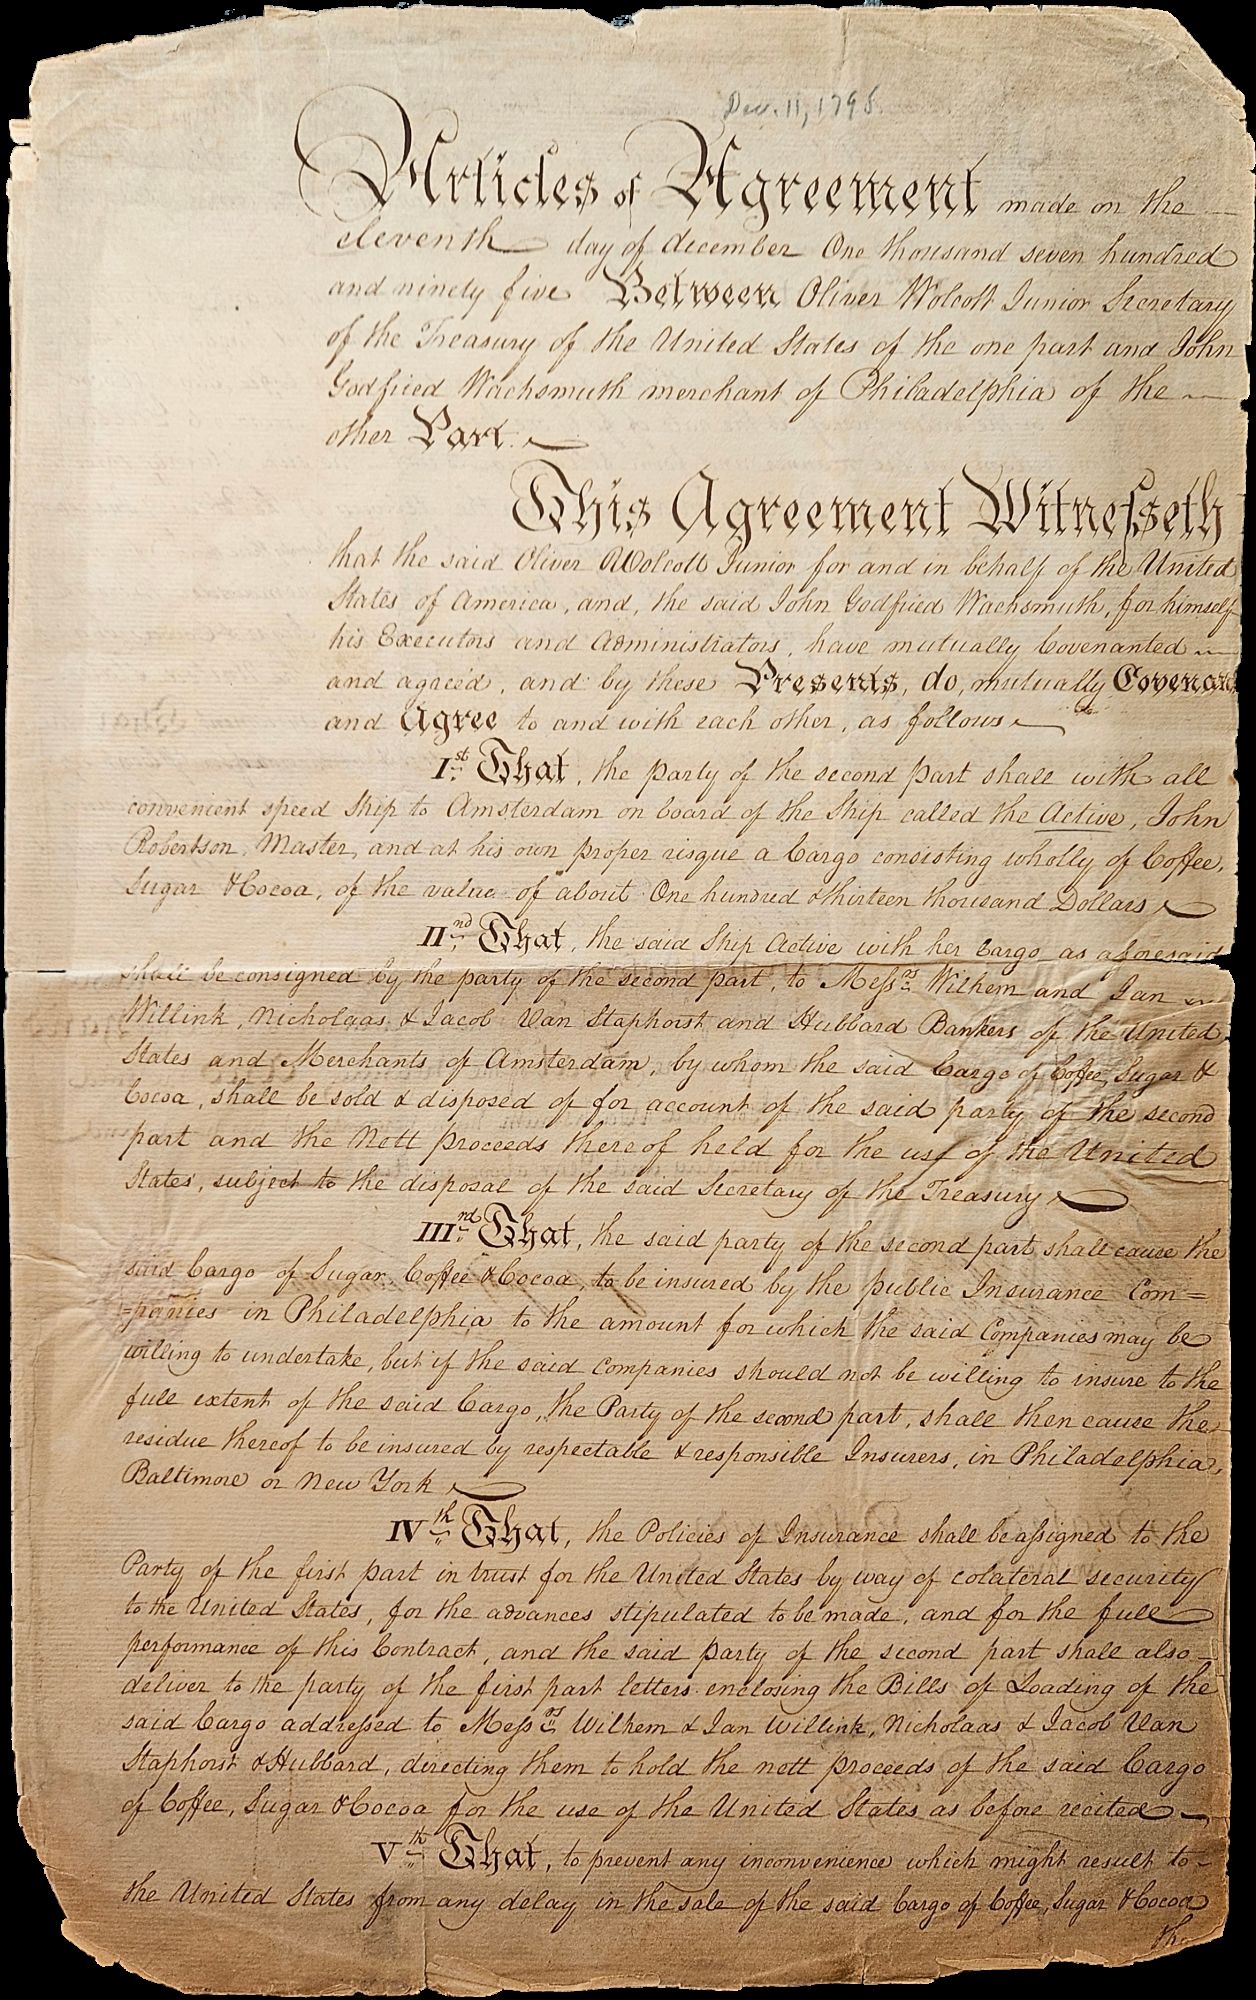 Dec. 11, 1795.
Articles of Agreement made on the
eleventh day of december One thousand seven hundred
and ninety five Between Oliver Wolcott Junior Secretary
of the Treasury of the United States of the one part and John
Godfried Wachsmuth merchant of Philadelphia of the
other Part.
This Agreement Witnesseth
that the said Oliver Wolcott Junior for and in behalf of the United
States of America, and, the said John Godfried Wachsmuth, for himself
his Executors and Administrators, have mutually Covenanted
and agreed, and by these Presents, do, mutually Covenant
and Agree to and with each other, as follows
Ist That, the party of the second part shall with all
convenient speed ship to Amsterdam on board of the Ship called the Active, John
Robertson, Master, and at his own proper risque a Cargo consisting wholly of Coffee,
Sugar & Cocoa, of the value of about One hundred & thirteen thousand Dollars
IInd That, the said Ship Active with her Cargo as aforesaid
shall be consigned by the party of the second part, to Messrs Wilhem and Jan
Willink, Nicholaas & Jacob Van Staphorst and Hubbard Bankers of the United
States and Merchants of Amsterdam, by whom the said Cargo of Coffee, Sugar &
Cocoa, shall be sold & disposed of for account of the said party of the second
part and the Nett proceeds thereof held for the use of the United
States, subject to the disposal of the said Secretary of the Treasury
IIIrd That, the said party of the second part shall cause the
said Cargo of Sugar, Coffee & Cocoa, to be insured by the public Insurance Com=
=panies in Philadelphia to the amount for which the said Companies may be
willing to undertake, but if the said companies should not be willing to insure to the
full extent of the said Cargo, the Party of the second part, shall then cause the
residue thereof to be insured by respectable & responsible Insurers, in Philadelphia,
Baltimore or New York
IVth That, the Policies of Insurance shall be assigned to the
Party of the first part in trust for the United States by way of colateral security
to the United States, for the advances stipulated to be made, and for the full
performance of this Contract, and the said party of the second part shall also
deliver to the party of the first part letters enclosing the Bills of Loading of the
said Cargo addressed to Messrs Wilhem & Jan Willink, Nicholaas & Jacob Van
Staphorst & Hubbard, directing them to hold the nett proceeds of the said Cargo
of Coffee, Sugar & Cocoa for the use of the United States as before recited
Vth That, to prevent any inconvenience which might result to
the United States from any delay in the sale of the said Cargo of Coffee, Sugar & Cocoa
the